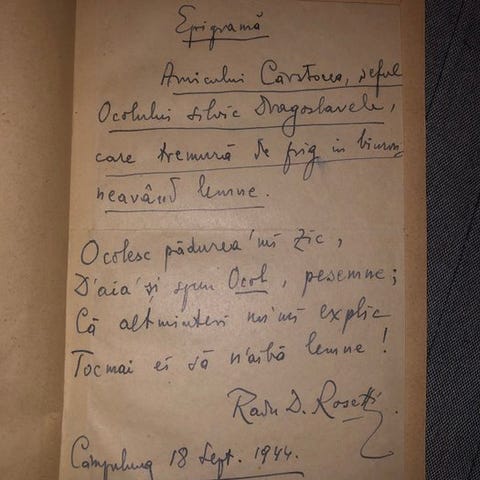 Epigramă
Amicului Cărstocea, șeful
Ocolului silvic Dragoslavele,
care tremură de frig in birou,
neavând lemne.
Ocolesc pădurea 'mi zic,
D'aia 'și spun Ocol, pesemne;
Că altminteri nu 'mi explic
Tocmai ei să n'aibă lemne!
Radu D. Rosetti.
Câmpulung 18 Sept. 1944.